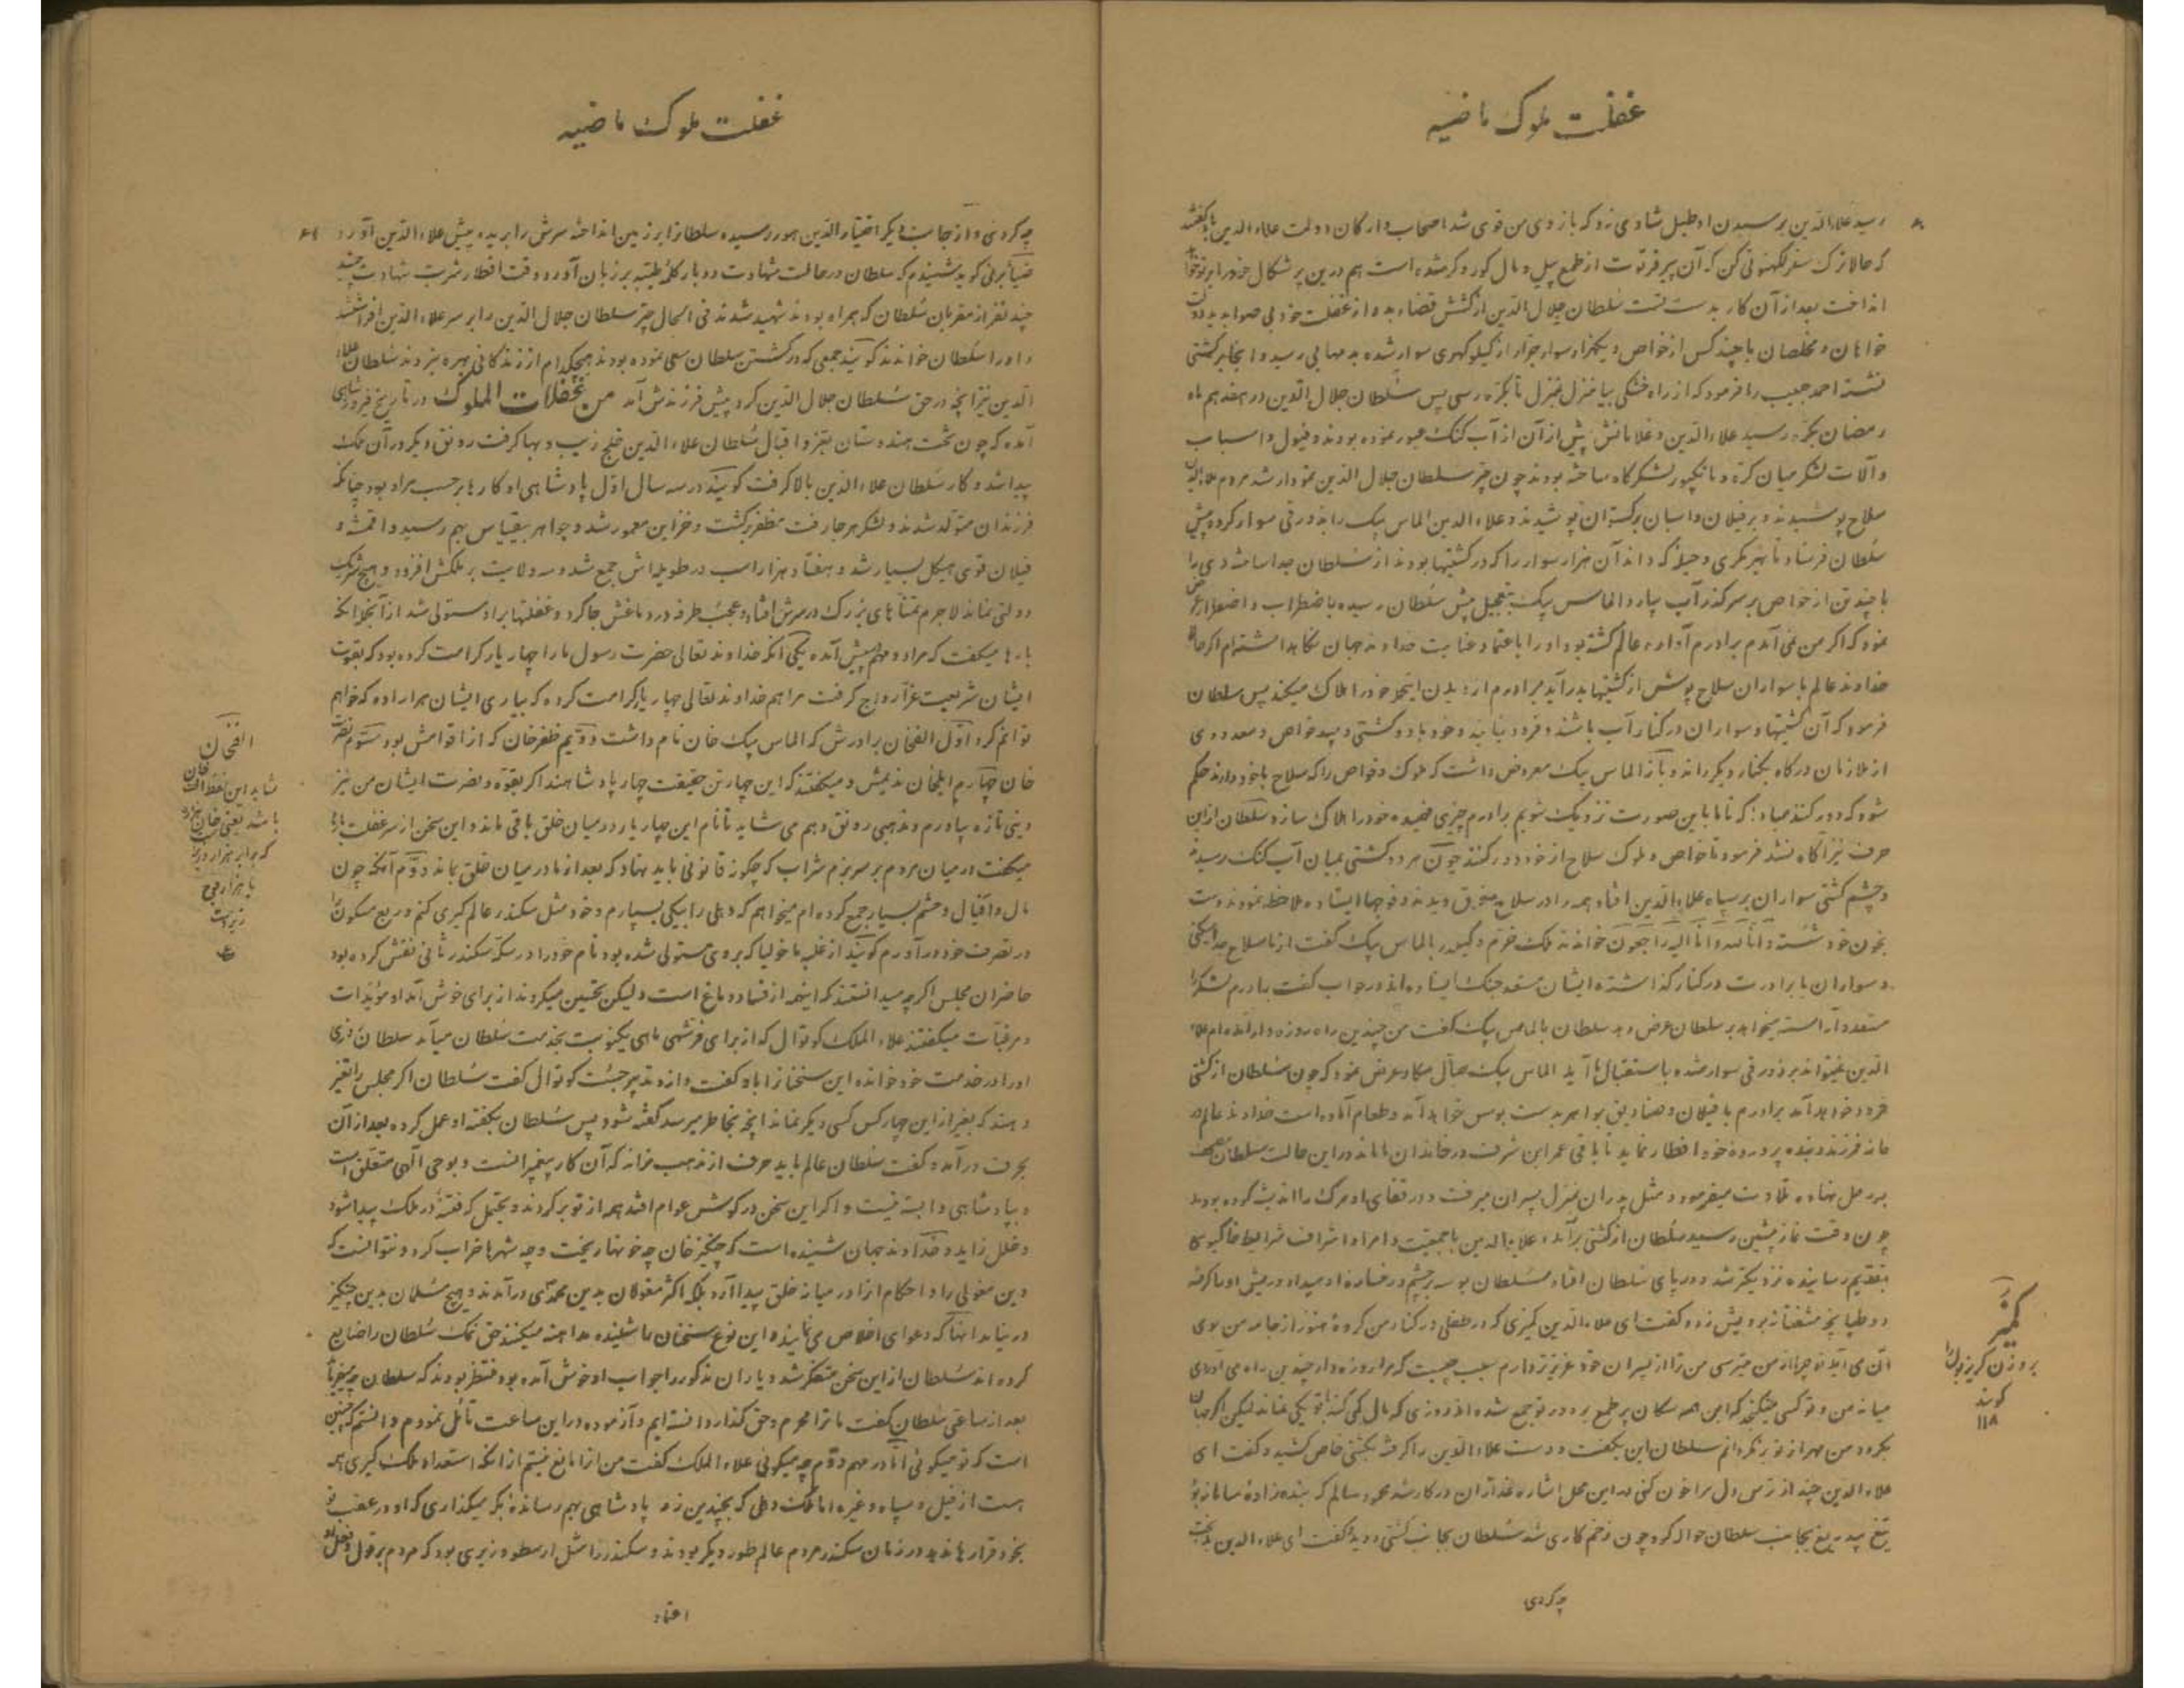 غفلت ملوک ماضیه
رسید علاءالدین بر سیدن او طبل شادی زد که بازوی من قوی شد اصحاب و ارکان دولت علاءالدین
که حالا ترک سفر لکهنوتی کن که آن پیر فرتوت از طمع پیل و مال کور و کر شده است هم درین بر شکال خود را بر تو خواهد
انداخت بعد از آن کار بدست تست سلطان جلال الدین از کشش قضاء بد و از غفلت خود بی صوابدید
خواهان و مخلصان با چند کس از خواص و یکهزار سوار جرار از کیلوکهری سوار شده
نشسته احمد حبیب را فرمود که از راه خشکی بیا منزل بمنزل تا بکره رسی پس سلطان جلال الدین در هفدهم ماه
رمضان بکره رسید علاءالدین و غلامانش پیش از آن از آب کنک عبور نموده بودند و فیول و اسباب
و آلات لشکر میان کره و مانکپور لشکرگاه ساخته بودند چون چتر سلطان جلال الدین نمودار شد مردم علاءالدین
سلاح پوشیدند و بر فیلان و اسبان برکستوان پوشیدند و علاءالدین الماس بیک را بذورقی سوار کرده پیش
سلطان فرستاد تا بهر مکری و حیله که داند آن هزار سوار را که در کشتیها بودند از سلطان جدا ساخته وی را
با چند تن از خواص بر سر گذر آب بیارد الماس بیک بتعجیل پیش سلطان رسیده باضطراب و اضطرار عرض
نمود که اگر من نمی آمدم برادرم آواره عالم گشته بود او را باعتماد عنایت خداوند جهان نگاهداشته ام اگر حالا
خداوند عالم با سواران سلاح پوش از کشتیها بدر آید برادرم از دیدن اینحال خود را هلاک میکند پس سلطان
فرمود که آن کشتیها و سواران در کنار آب باشند و فرود نیایند و خود با دو کشتی و چند خواص و معدودی
از ملازمان درگاه بکنار دیگر راند و باز الماس بیک معروض داشت که ملوک و خواص را که سلاح با خود دارند حکم
شود که دور کنند مبادا که تا ما باین صورت نزدیک شویم برادرم چیزی فهمیده خود را هلاک سازد سلطان ازین
حرف نیز آگاه نشد فرمود تا خواص و ملوک سلاح از خود دور کنند چون هر دو کشتی بمیان آب کنک رسید
و چشم کشتی سواران بر سپاه علاءالدین افتاد همه را در سلاح غرق دیدند و فوجها ایستاده ملاحظه نمودند دست
بخون خود شسته و انا لله و انا الیه راجعون خواندند ملک خرم وکیلدر بالماس بیک گفت از ما سلاح جدا میکنی
و سواران ما برادرت در کنار گذاشته ایشان مستعد جنگ ایستاده اند در جواب گفت برادرم لشکر را
مستعد و آراسته میخواهد بر سلطان عرض دهد سلطان بالماس بیک گفت من چندین راه روزه دار آمده ام علاء
الدین نمیتواند بر ذورقی سوار شده باستقبال ما آید الماس بیک محیل مکار عرض نمود که چون سلطان از کشتی
فرود خواهد آمد برادرم با فیلان و صنادیق جواهر بدست بوس خواهد آمد و طعام آماده است خداوند عالم در
خانه فرزند و بنده پرورده خود افطار نماید تا باقی عمر این شرف در خاندان ما ماند در این حالت سلطان مصحف
بر رحل نهاده تلاوت میفرمود و مثل پدران بمنزل پسران میرفت و در قفای او مرگ را اندیشه کرده بودند
چون وقت نماز پیشین رسید سلطان از کشتی برآمد و علاءالدین با جمعیت و امراء اشراف شرایط خاکبوسی
بتقدیم رسانیده نزدیکتر شد و در پای سلطان افتاد سلطان بوسه بر چشم و رخساره او میداد و ریش او را گرفته
دو طپانچه مشفقانه برویش زده گفت ای علاءالدین کمیزی که در طفلی در کنار من کرده هنوز از جامه من بوی
آن می آید تو چرا از من میترسی من ترا از پسران خود عزیزتر دارم سبب چیست که مرا روزه دار چندین راه می آوری
میانه من و تو کسی میگنجد که این همه سگان پر طمع بر در تو جمع شده اند روزی که مال کمی کند با تو یکی نماند لیکن اگر جهان
بگردد من مهر از تو بر نگردانم سلطان این بگفت و دست علاءالدین را گرفته بکشتی خاص کشید و گفت ای
علاءالدین چند از ترس دل مرا خون کنی در این محل اشاره غداران در کار شد محمود سالم که بنده زاده سامانه بود
تیغ بیدریغ بجانب سلطان حواله کرد چون زخم کاری شد سلطان بجانب کشتی دوید و گفت ای علاءالدین بدبخت
چه کردی
کمیز
بر وزن گریز بول را
گویند
۱۱۸
غفلت ملوک ماضیه
چه کردی و از جانب دیگر اختیارالدین هور رسیده سلطانرا بر زمین انداخته سرش را بریده پیش علاءالدین آورد
ضیاء برنی گوید شنیدم که سلطان در حالت شهادت دوبار کلمه طیبه بر زبان آورد وقت افطار شربت شهادت چشید
چند نفر از مقربان سلطان که همراه بودند شهید شدند فی الحال چتر سلطان جلال الدین را بر سر علاءالدین افراشتند
و او را سلطان خواندند گویند جمعی که در کشتن سلطان سعی نموده بودند هیچکدام از زندگانی بهره نبردند سلطان علاء
الدین نیز آنچه در حق سلطان جلال الدین کرد پیش فرزندش آمد من غفلات الملوک در تاریخ فیروزشاهی
آمده که چون تخت هندوستان بعز و اقبال سلطان علاءالدین خلج زیب و بها گرفت رونق دیگر در آن ملک
پیدا شد و کار سلطان علاءالدین بالا گرفت گویند در سه سال اول پادشاهی او کارها بر حسب مراد بود چنانکه
فرزندان متولد شدند و لشکر هر جا رفت مظفر برگشت و خزاین معمور شد و جواهر بیقیاس بهم رسید و اقمشه و
فیلان قوی هیکل بسیار شد و هفتاد هزار اسب در طویله اش جمع شد و سه ولایت بر ملکش افزود و هیچ شریک
دولتی نماند لاجرم تمناهای بزرگ در سرش افتاد و عجب طرفه در دماغش جا کرد و غفلتها بر او مستولی شد از آنجمله آنکه
بارها میگفت که مرا دو مهم پیش آمده یکی آنکه خداوند تعالی حضرت رسول ما را چهار یار کرامت کرده بود که بقوت
ایشان شریعت غرا رواج گرفت مرا هم خداوند تعالی چهار یار کرامت کرده که بیاری ایشان هر اراده که خواهم
توانم کرد اول الفخان برادرش که الماس بیک خان نام داشت دویم ظفرخان که از اقوامش بود سیوم نصرت
خان چهارم الپخان ندیمش و میگفتند که این چهار تن حقیقت چهار پادشاهند اگر بقوه و نصرت ایشان من نیز
دینی تازه بیاورم و مذهبی رونق دهم می شاید تا نام این چهار یار در میان خلق باقی ماند و این سخن از سر غفلت بارها
میگفت در میان مردم بر سر بزم شراب که چگونه قانونی باید نهاد که بعد از ما در میان خلق بماند دوم آنکه چون
مال و افیال و حشم بسیار جمع کرده ام میخواهم که دهلی را بیکی بسپارم و خود مثل سکندر عالم گیری کنم و ربع مسکون را
در تصرف خود در آورم گویند از غلبه ماخولیا که بر وی مستولی شده بود نام خود را در سکه سکندر ثانی نقش کرده بود
حاضران مجلس اگر چه میدانستند که اینهمه از فساد دماغ است ولیکن تحسین میکردند از برای خوش آمد او مؤیدات
و مرغبات میگفتند علاءالملک کوتوال که از برای فربهی ماهی یکنوبت بخدمت سلطان میآمد سلطان روزی
او را در خدمت خود خوانده این سخنان را باو گفت و از وی تدبیر جست کوتوال گفت سلطان اگر مجلس را تغیر
دهند که بغیر از این چهار کس کسی دیگر نماند آنچه بخاطر میرسد گفته شود پس سلطان بگفته او عمل کرده بعد از آن
بحرف درآمد و گفت سلطان عالم باید حرف از مذهب نراند که آن کار پیغمبرانست و بوحی الهی متعلق است
و بپادشاهی وابسته نیست و اگر این سخن در گوش عوام افتد همه از تو برگردند و یحتمل که فتنه در ملک پیدا شود
و خلل زاید و خداوند جهان شنیده است که چنگیز خان چه خونها ریخت و چه شهرها خراب کرد و نتوانست که
دین مغولی را و احکام آنرا در میانه خلق پیدا آرد بلکه اکثر مغولان بدین محمدی درآمدند و هیچ مسلمان بدین چنگیز
در نیامد آنها که دعوای اخلاص می نمایند و این نوع سخنان را شنیده مداهنه میکنند حق نمک سلطان را ضایع
کرده اند سلطان از این سخن متفکر شد و یاران مذکور را جواب او خوش آمده بود منتظر بودند که سلطان چه میفرماید
بعد از ساعتی سلطان گفت ما ترا محرم و حق گذار دانسته ایم و آزموده در این ساعت تأمل نمودم دانستم که چنین
است که تو میگوئی اما در مهم دوم چه میگوئی علاءالملک گفت من آنرا مانع نیستم از آنکه استعداد ملک گیری همه
هست از فیل و سپاه و غیره اما ملک دهلی که بچندین زحمت پادشاهی بهم رسانده بکه میگذاری که او در عقب تو
بخود قرار ماند در زمان سکندر مردم عالم طور دیگر بودند و سکندر را مثل ارسطو وزیری بود که مردم بر قول و فعل او
اعتماد
الفخان
شاید این لفظ الف خان
باشد یعنی خان هزار
که برابر هزار
یا هزار فوج